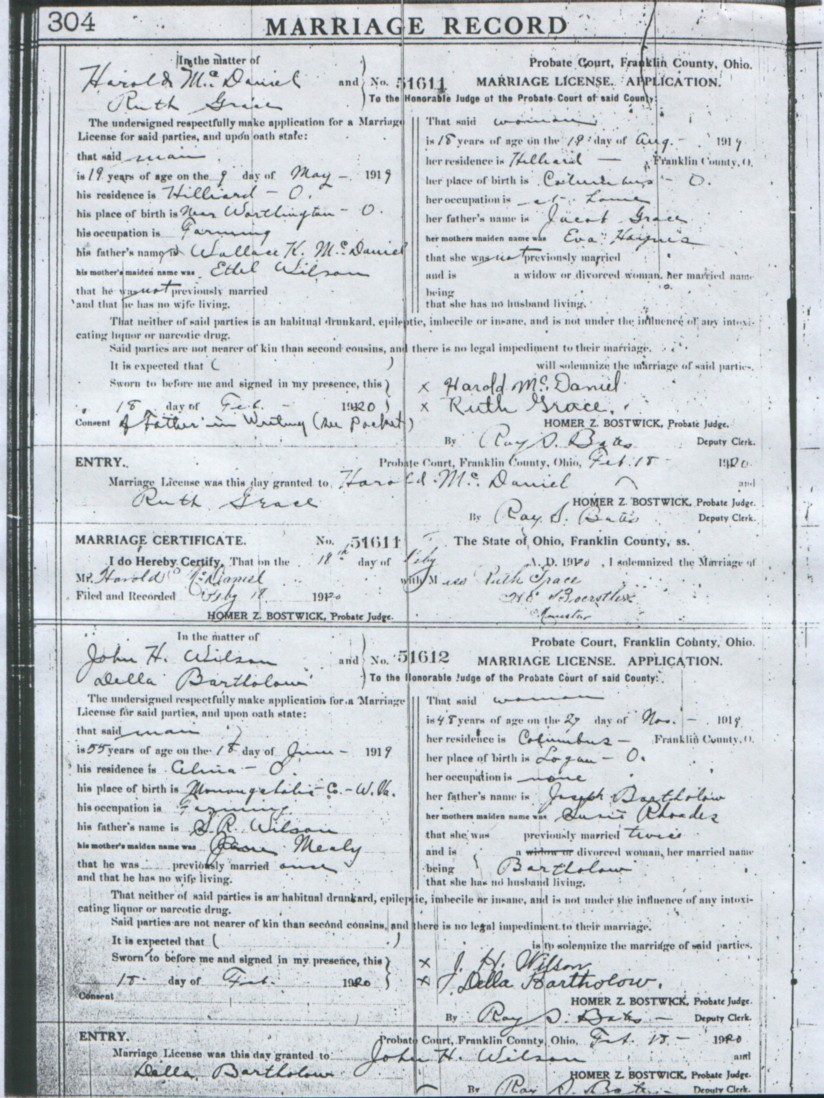 304 MARRIAGE RECORD
In the matter of
Harold McDaniel
and
Ruth Grace
No. 51611
Probate Court, Franklin County, Ohio.
MARRIAGE LICENSE. APPLICATION.
To the Honorable Judge of the Probate Court of said County:
The undersigned respectfully make application for a Marriage
License for said parties, and upon oath state:
that said man
is 19 years of age on the 9 day of May - 1919
his residence is Hilliard - O.
his place of birth is Near Worthington - O.
his occupation is Farming
his father's name is Wallace K. McDaniel
his mother's maiden name was Ethel Wilson
that he was not previously married
and that he has no wife living.
That said woman
is 18 years of age on the 19 day of Aug. - 1919
her residence is Hilliard - Franklin County, O.
her place of birth is Columbus - O.
her occupation is at Home
her father's name is Jacob Grace
her mothers maiden name was Eva Haynes
that she was not previously married
and is a widow or divorced woman, her married name
being
that she has no husband living.
That neither of said parties is an habitual drunkard, epileptic, imbecile or insane, and is not under the influence of any intoxi-
cating liquor or narcotic drug.
Said parties are not nearer of kin than second cousins, and there is no legal impediment to their marriage.
It is expected that ( ) will solemnize the marriage of said parties.
Sworn to before me and signed in my presence, this
18 day of Feb. - 1920
x Harold McDaniel
x Ruth Grace.
Consent of Father in Writing (See Packet)
HOMER Z. BOSTWICK, Probate Judge.
By Ray S. Bates Deputy Clerk.
ENTRY. Probate Court, Franklin County, Ohio, Feb. 18 - 1920
Marriage License was this day granted to Harold McDaniel and
Ruth Grace
HOMER Z. BOSTWICK, Probate Judge.
By Ray S. Bates Deputy Clerk.
MARRIAGE CERTIFICATE. No. 51611 The State of Ohio, Franklin County, ss.
I do Hereby Certify, That on the 18th day of Feby A. D. 1920, I solemnized the Marriage of
Mr. Harold McDaniel with Miss Ruth Grace
Filed and Recorded Feby 1920
Minister
HOMER Z. BOSTWICK, Probate Judge.
In the matter of
John H. Wilson
and
Della Bartholow
No. 51612
Probate Court, Franklin County, Ohio.
MARRIAGE LICENSE. APPLICATION.
To the Honorable Judge of the Probate Court of said County:
The undersigned respectfully make application for a Marriage
License for said parties, and upon oath state:
that said man
is 55 years of age on the 18 day of June - 1919
his residence is Celina - O.
his place of birth is Monongahalia Co. - W.Va.
his occupation is Farming
his father's name is S. R. Wilson
his mother's maiden name was Mealy
that he was previously married once
and that he has no wife living.
That said woman
is 48 years of age on the 27 day of Nov. - 1919
her residence is Columbus - Franklin County, O.
her place of birth is Logan - O.
her occupation is none
her father's name is Joseph Bartholow
her mothers maiden name was Susie Rhoades
that she was previously married twice
and is a widow or divorced woman, her married name
being Bartholow
that she has no husband living.
That neither of said parties is an habitual drunkard, epileptic, imbecile or insane, and is not under the influence of any intoxi-
cating liquor or narcotic drug.
Said parties are not nearer of kin than second cousins, and there is no legal impediment to their marriage.
It is expected that ( ) is to solemnize the marriage of said parties.
Sworn to before me and signed in my presence, this
18 day of Feb. 1920
x J. H. Wilson
x J. Della Bartholow.
Consent
HOMER Z. BOSTWICK, Probate Judge.
By Ray S. Bates - Deputy Clerk.
ENTRY. Probate Court, Franklin County, Ohio, Feb. 18 - 1920
Marriage License was this day granted to John H. Wilson and
Della Bartholow
HOMER Z. BOSTWICK, Probate Judge.
By Ray S. Bates - Deputy Clerk.